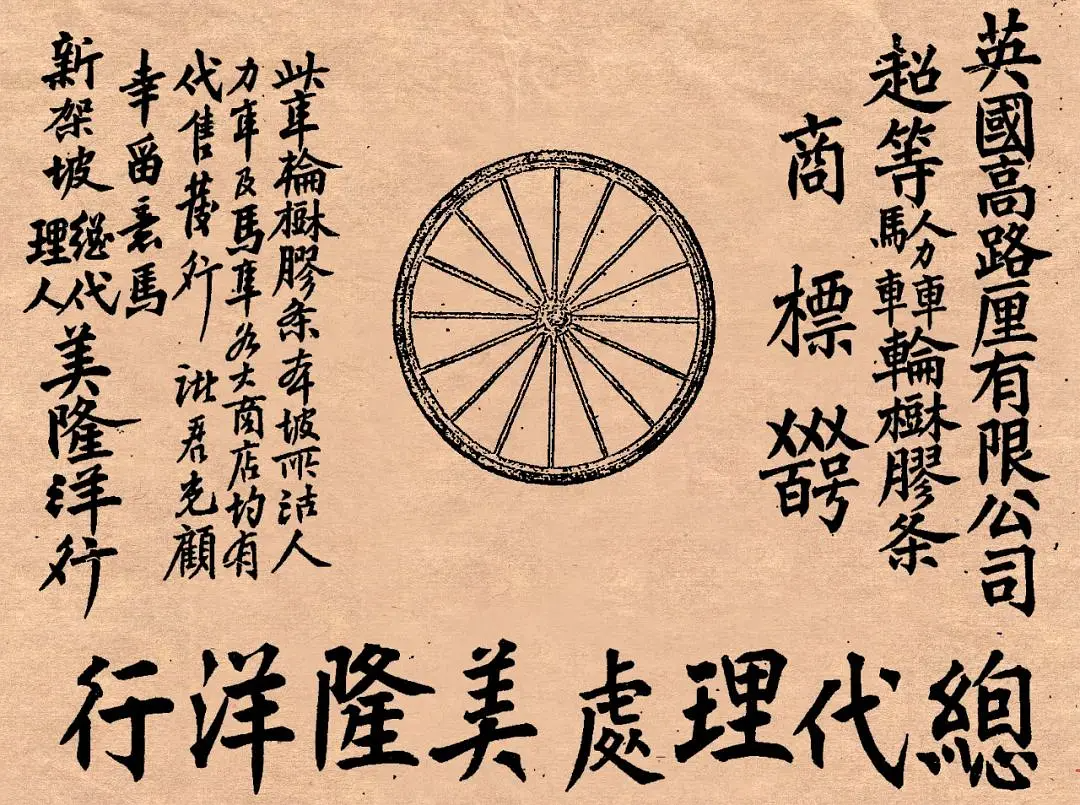 英國高路厘有限公司
超等人力車馬車輪樹膠条
商標〤〤〤百号
此車輪樹膠条本坡所沽人
力車及馬車各大商店均有
代售發行 諸君光顧
幸留意焉
新架坡總代理人美隆洋行
總代理處美隆洋行